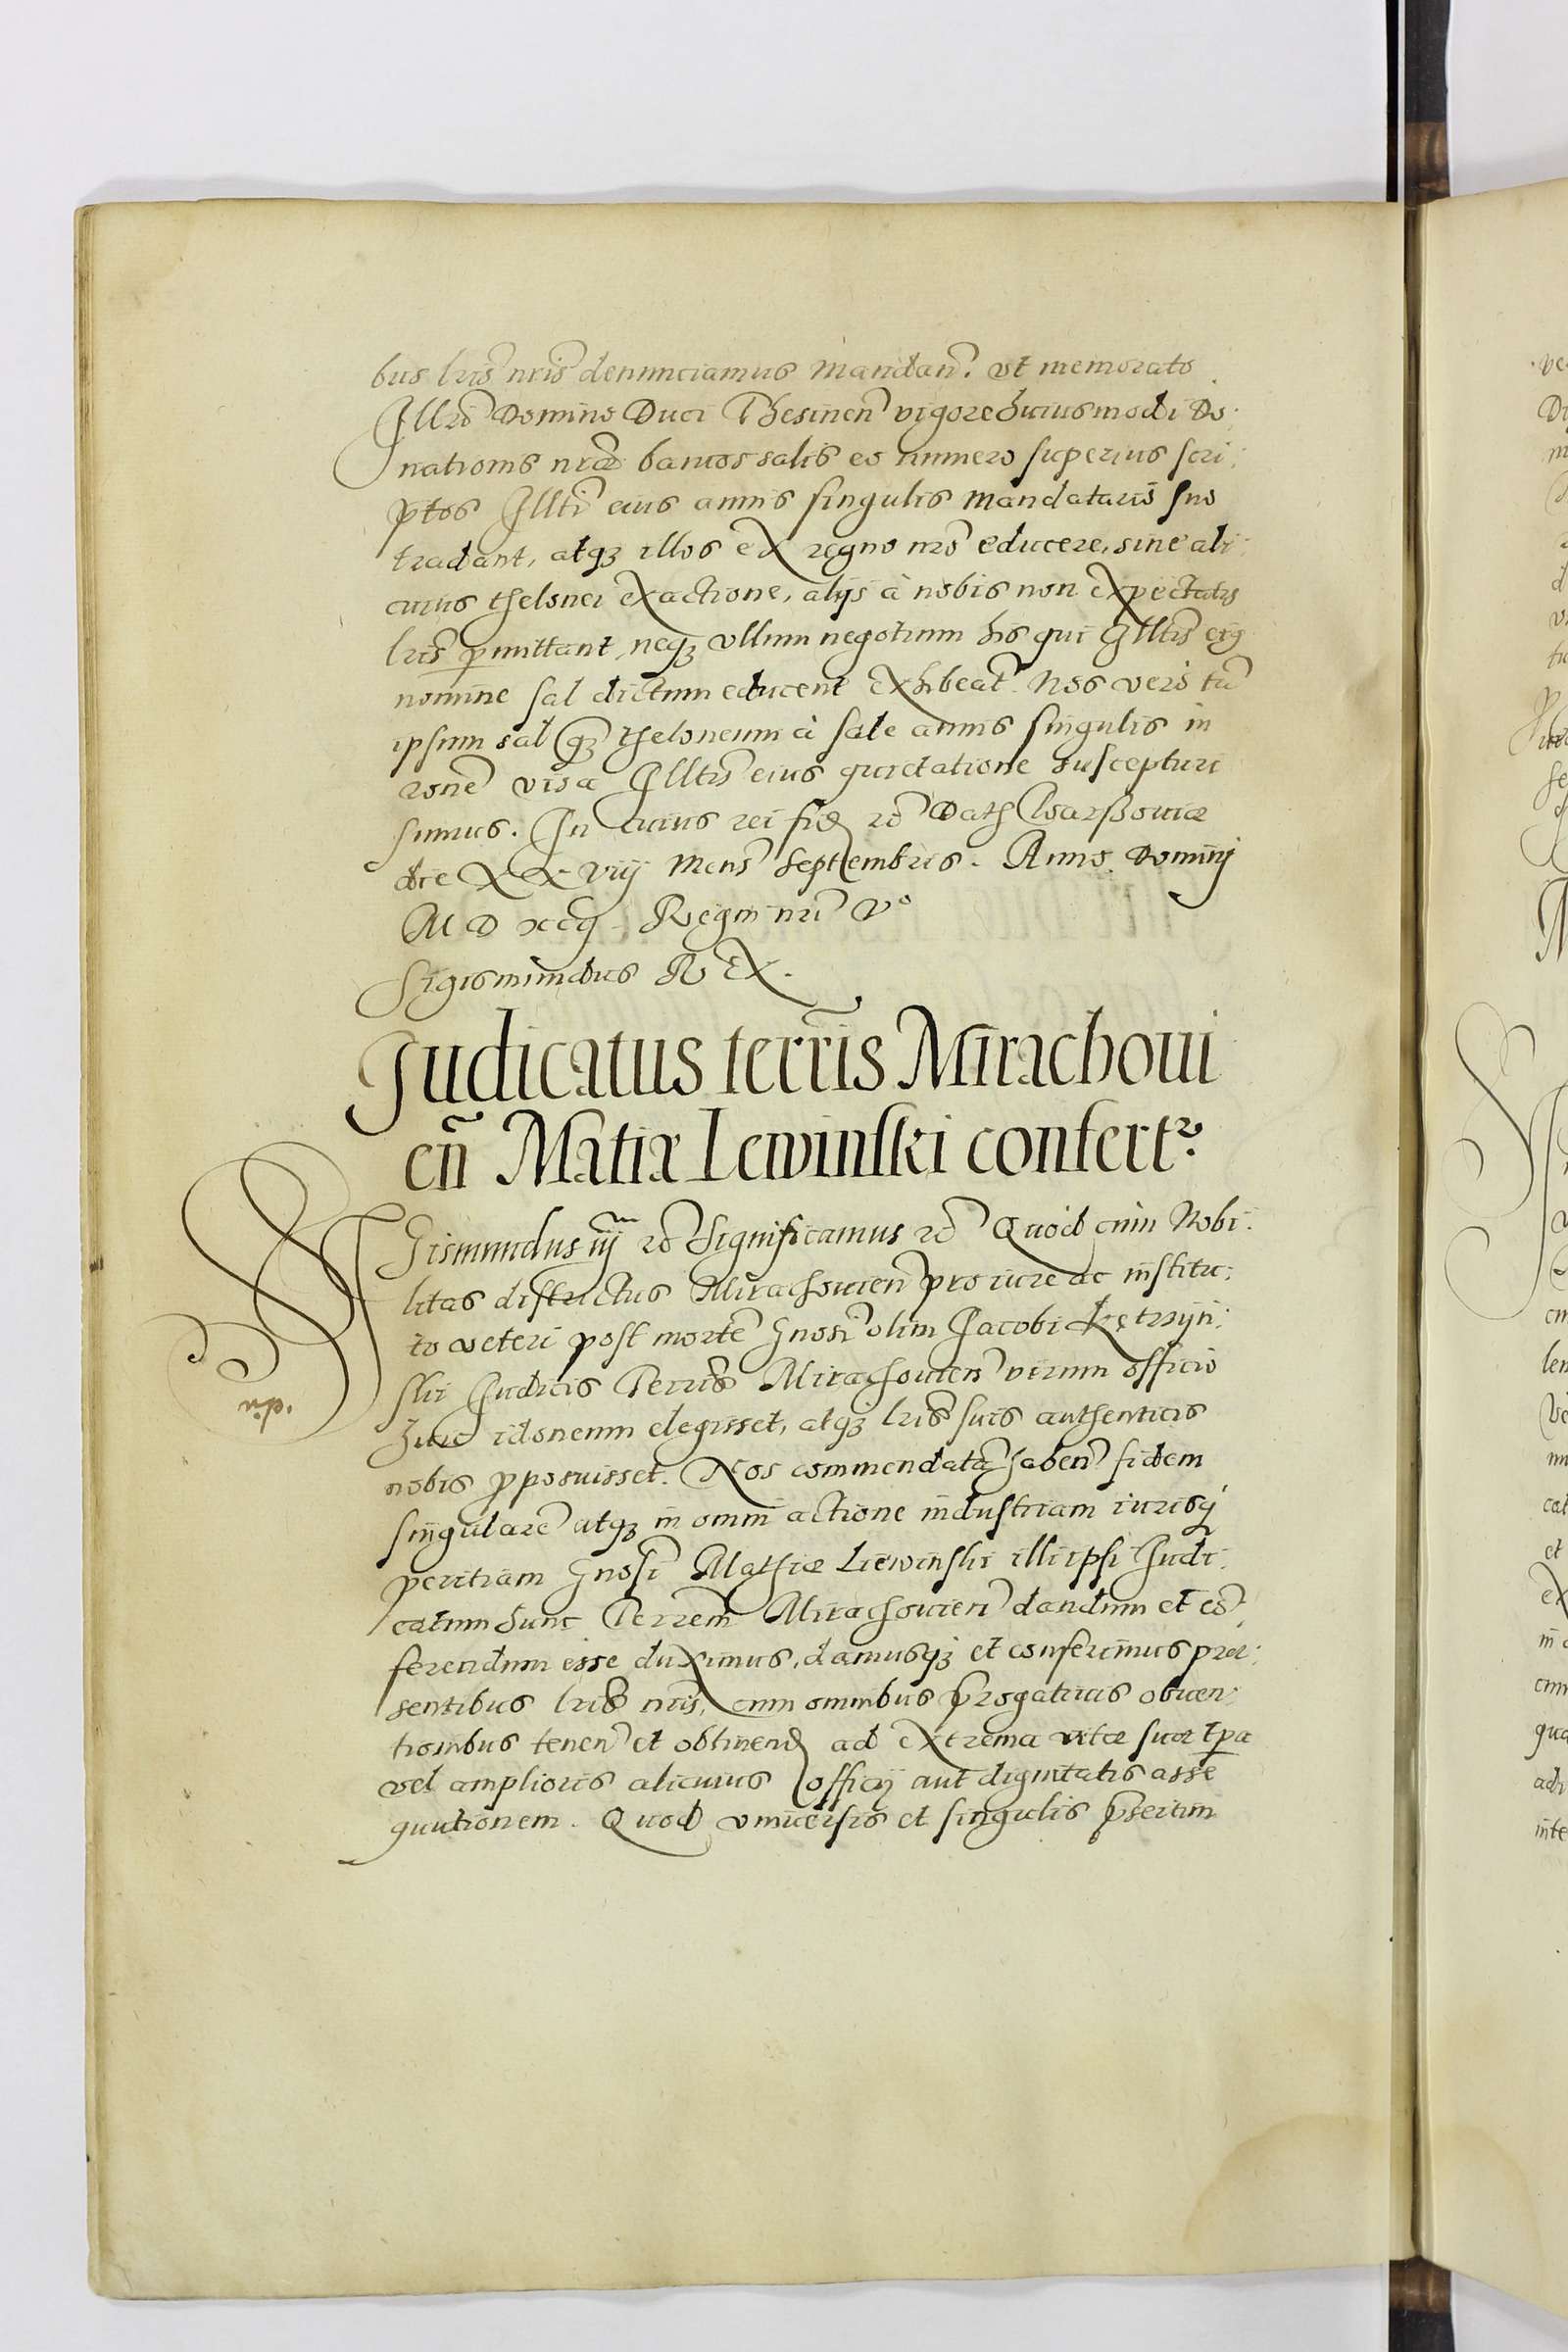 bus lr̃is nr̃is denunciamus mandañ. vt memorato
Illr̃o Domino Duci Thesineñ vigore huiusmodi Do:
nationis nr̃æ bancos salis eo numero superius scri:
ptos Illtĩ eius annis singulis mandatario suo
tradant, atqȝ illos ex regno nr̃o educere, sine ali:
cuius thelonei exactione, alijs à nobis non expectatis
lr̃is pmittant, neqȝ vllum negotium his qui Illtis̃ eiꝫ
nomine sal dictum educent exhibeãt. Nos vero tũ
ipsum sal qȝ theloneum à sale annis singulis in
rone͂ visa Illtis̃ eius quietatione suscepturi
sumus. In cuius rei fid̃ r̃o Dath Warssouiæ
die XX viij Mens̃ Septembris. Anno Dominij
M D xcij Regni nr̃i Vᵒ
Sigismundus REX.
Judicatus terr̃is Mirachoui
eñ Matiæ Lewinski confertᷣ
Sigismundus iijᵐ r̃o Significamus r̃o Quod cum Nobi:
litas districtus Mirachouieñ pro iure ac institu:
to veteri post morte͂ Gnosĩ olim Jacobi Kętrzyn:
ski Judicis Terris̃ Mirachouieñ virum officio
huic idoneum elegisset, atqȝ lr̃is suis authenticis
nobis pposuisset. Nos commendatã habeñ fidem
singulare͂ atqȝ in omni actione industriam iurisqȝ
peritiam Gnosĩ Mathiæ Liewinski illi ipsi Judi:
catum hunc Terrem̃ Mirachouieñ dandum et cõ
ferendum esse duximus, damusqȝ et conferimus præ:
sentibus lr̃is nr̃is, cum omnibus progatiuis obuen:
tionibus teneñ et obtinend̃ ad extrema vitæ suæ tpa
vel amplioris alicuius officij aut dignitatis asse
quutionem. Quod vniuersis et singulis psertim